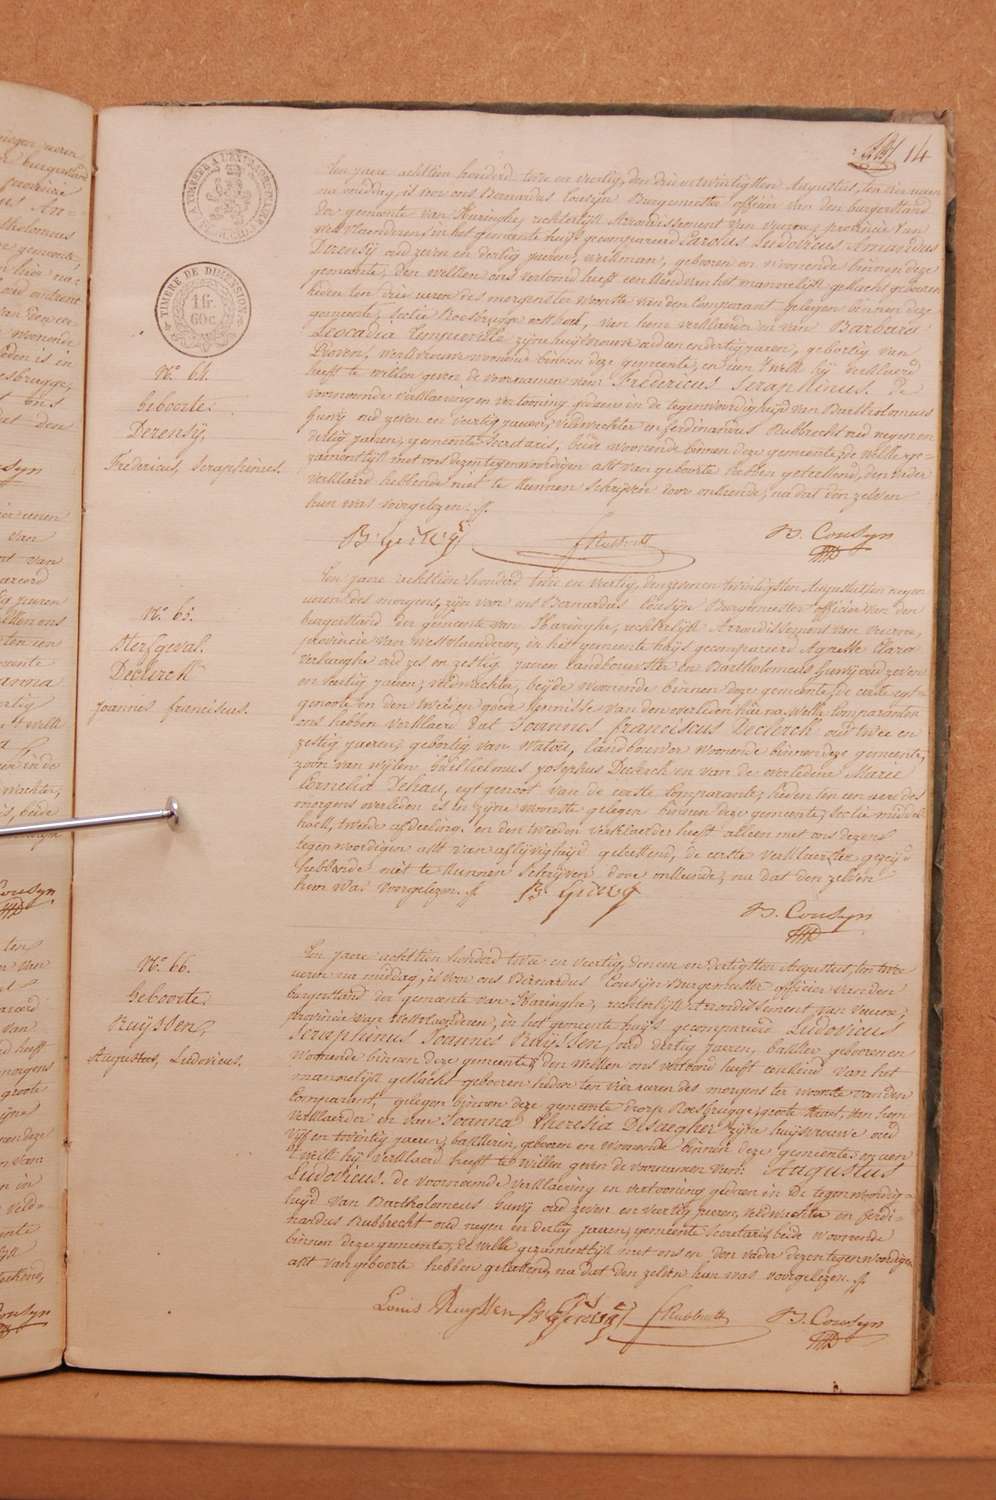 14
A TIMBRER A L'EXTRAORDINAIRE
TIMBRE DE DIMENSION
1 fr.
60 c.
Nº 64.
Geboorte.
Derensy,
Fredericus, Seraphinus.
Een jaere achttien honderd twee en veertig, den drie en twintigsten Augustus, ten vier uren
na middag, is voor ons Bernardus Cousijn Burgemeester officier van den burgerstand
der gemeente van Haringhe, rechterlijk Arrondissement van Veurne, provincie van
westvlaenderen in het gemeente huijs gecompareerd Carolus Ludovicus Amandus
Derensy oud zeven en dertig jaeren, werkman, gebooren en woonende binnen deze
gemeente, den welken ons vertoond heeft een kind van het mannelijk geslacht gebooren
heden ten drie uren des morgens ter woonste van den Comparant gelegen binnen deze
gemeente, sectie Roesbrugge, van hem verklaerder en van Barbara
Leocadia Tempeville zijne huijsvrouwe oud een en dertig jaeren, geboortig van
Proven, werkvrouwe woonende binnen deze gemeente, en aen 't welk hij verklaerd
heeft te willen geven de voornamen van Fredericus Seraphinus. de
voornoemde verklaering en vertooning gedaen in de tegenwoordigheijd van Bartholomeus
Guwij oud zeven en veertig jaeren, veldwachter en ferdinandus Rubbrecht oud negen en
dertig jaeren, gemeente secretaris, beide woonende binnen deze gemeente, de welke ge-
zamentlijk met ons dezen tegenwoordigen akt van geboorte hebben geteekend, den vader
verklaerd hebbende niet te kunnen schrijven door onkunde, na dat den zelven
hun was voorgelezen.
B. Guwij F. Rubbrecht B. Cousyn
Nº 65.
Sterfgeval.
Declerck
Joannes franciscus.
Een jaere achttien honderd twee en veertig, den zeven en twintigsten Augustus ten negen
uren des morgens, zijn voor ons Bernardus Cousijn Burgemeester officier van den
burgerstand der gemeente van Haringhe, rechterlijk Arrondissement van veurne,
provincie van westvlaenderen, in het gemeente huijs gecompareerd Agnette Clara
verhaeghe oud zes en zestig jaeren landbouwster en Bartholomeus Guwij oud zeven
en veertig jaeren, veldwachter, beijde woonende binnen deze gemeente, de eerste egt-
genoote en den tweeden goede kennisse van den overleden hier na, welke Comparanten
ons hebben verklaerd dat Joannes franciscus Declerck oud twee en
zestig jaeren, geboortig van Watou, landbouwer woonende binnen deze gemeente,
zoon van wijlen Guillielmus josephus Declerck en van de overledene Marie
Cornelia Dehau, egtgenoot van de eerste Comparante, heden ten een uere des
morgens overleden is in zijne woonste gelegen binnen deze gemeente, sectie middel
hoek, tweede afdeeling. en den tweeden verklaerder heeft alleen met ons dezen
tegenwoordigen akt van aflijvigheijd geteekend, de eerste verklaerster gezeijd
hebbende niet te kunnen schrijven door onkunde, na dat den zelven
hun was voorgelezen.
B. Guwij
B. Cousyn
Nº 66.
Geboorte.
Ruijssen,
Augustus, Ludovicus.
Een jaere achttien honderd twee en veertig, den een en dertigsten Augustus, ten twee
uren na middag, is voor ons Bernardus Cousijn Burgemeester officier van den
burgerstand der gemeente van Haringhe, rechterlijk Arrondissement van Veurne,
provincie van westvlaenderen, in het gemeente huijs gecompareerd Ludovicus
Seraphinus Joannes Ruijssen, oud dertig jaeren, bakker, gebooren en
woonende binnen deze gemeente, den welken ons vertoond heeft een kind van het
mannelijk geslacht gebooren heden ten vier uren des morgens ter woonste van den
Comparant, gelegen binnen deze gemeente dorp Roesbrugge, groote straet, van hem
verklaerder en van Joanna Theresia Desaegher zijne huijsvrouwe oud
vijf en twintig jaeren, bakkerin, gebooren en woonende binnen deze gemeente, en aen
't welk hij verklaerd heeft te willen geven de voornamen van Augustus
Ludovicus. de voornoemde verklaering en vertooning gedaen in de tegenwoordig-
heijd van Bartholomeus Guwij oud zeven en veertig jaeren, veldwachter en ferdi-
nandus Rubbrecht oud negen en dertig jaeren, gemeente secretaris, beide woonende
binnen deze gemeente, de welke gezamentlijk met ons en den vader dezen tegenwoordigen
akt van geboorte hebben geteekend, na dat den zelven hun was voorgelezen.
Louis Ruyssen B. Guwij F. Rubbrecht B. Cousyn